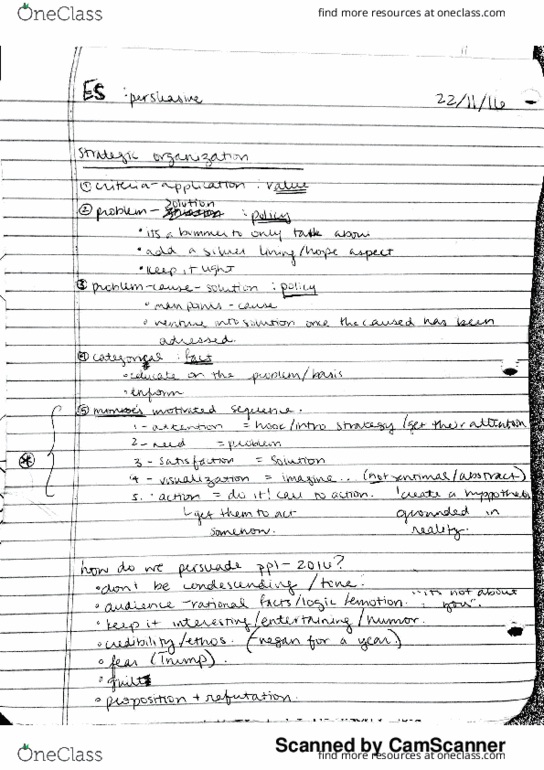 OneClass find more resources at oneclass.com
ES : persuasive 22/11/16
Strategic organization
① criteria-application : value
② problem - solution : policy
• its a bummer to only talk about
• add a silver lining/hope aspect
• keep it light
③ problem-cause-solution : policy
• main points - cause
• venture into solution once the caused has been
adressed.
④ categorical : fact
• educate on the problem/basis
• inform
⑤ monroe's motivated sequence.
1 - attention = hook/intro strategy /get their attention
2 - need = problem
3 - satisfaction = solution
4 - visualization = imagine... (not sentimal/abstract)
5. action = do it! call to action. create a hypothesis
get them to act grounded in
somehow. reality.
how do we persuade ppl - 2016?
• don't be condescending / tone.
• audience - rational facts/logic /emotion. "it's not about
• keep it interesting/entertaining/humor. you".
• credibility/ethos. (vegan for a year.)
• fear (Trump).
• guilt
• proposition + refutation.
Scanned by CamScanner
OneClass find more resources at oneclass.com